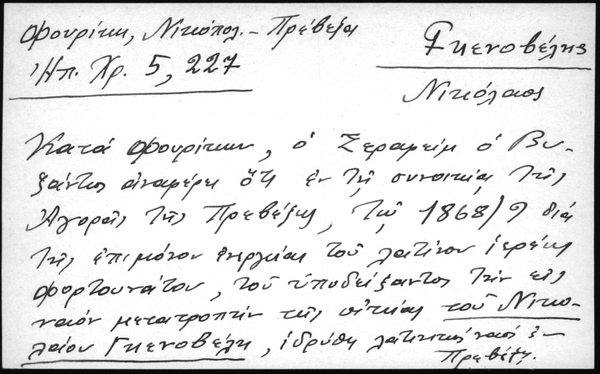 Φουρίκη, Νικόπολ. - Πρέβεζα
Ἠπ. Χρ. 5, 227
Γκενοβέλης
Νικόλαος
Κατά Φουρίκην, ὁ Σεραφείμ ὁ Βυ-
ζάντιος ἀναφέρει ὅτι ἐν τῇ συνοικίᾳ τῆς
Ἀγορᾶς τῆς Πρεβέζης, τῷ 1868/9 διά
τῆς ἐπιμόνου ἐνεργείας τοῦ λατίνου ἱερέως
Φορτουνάτου, τοῦ ὑποδείξαντος τήν εἰς
ναόν μετατροπήν τῆς οἰκίας τοῦ Νικο-
λάου Γκενοβέλη, ἱδρύθη λατινικός ναός ἐν
Πρεβέζῃ.